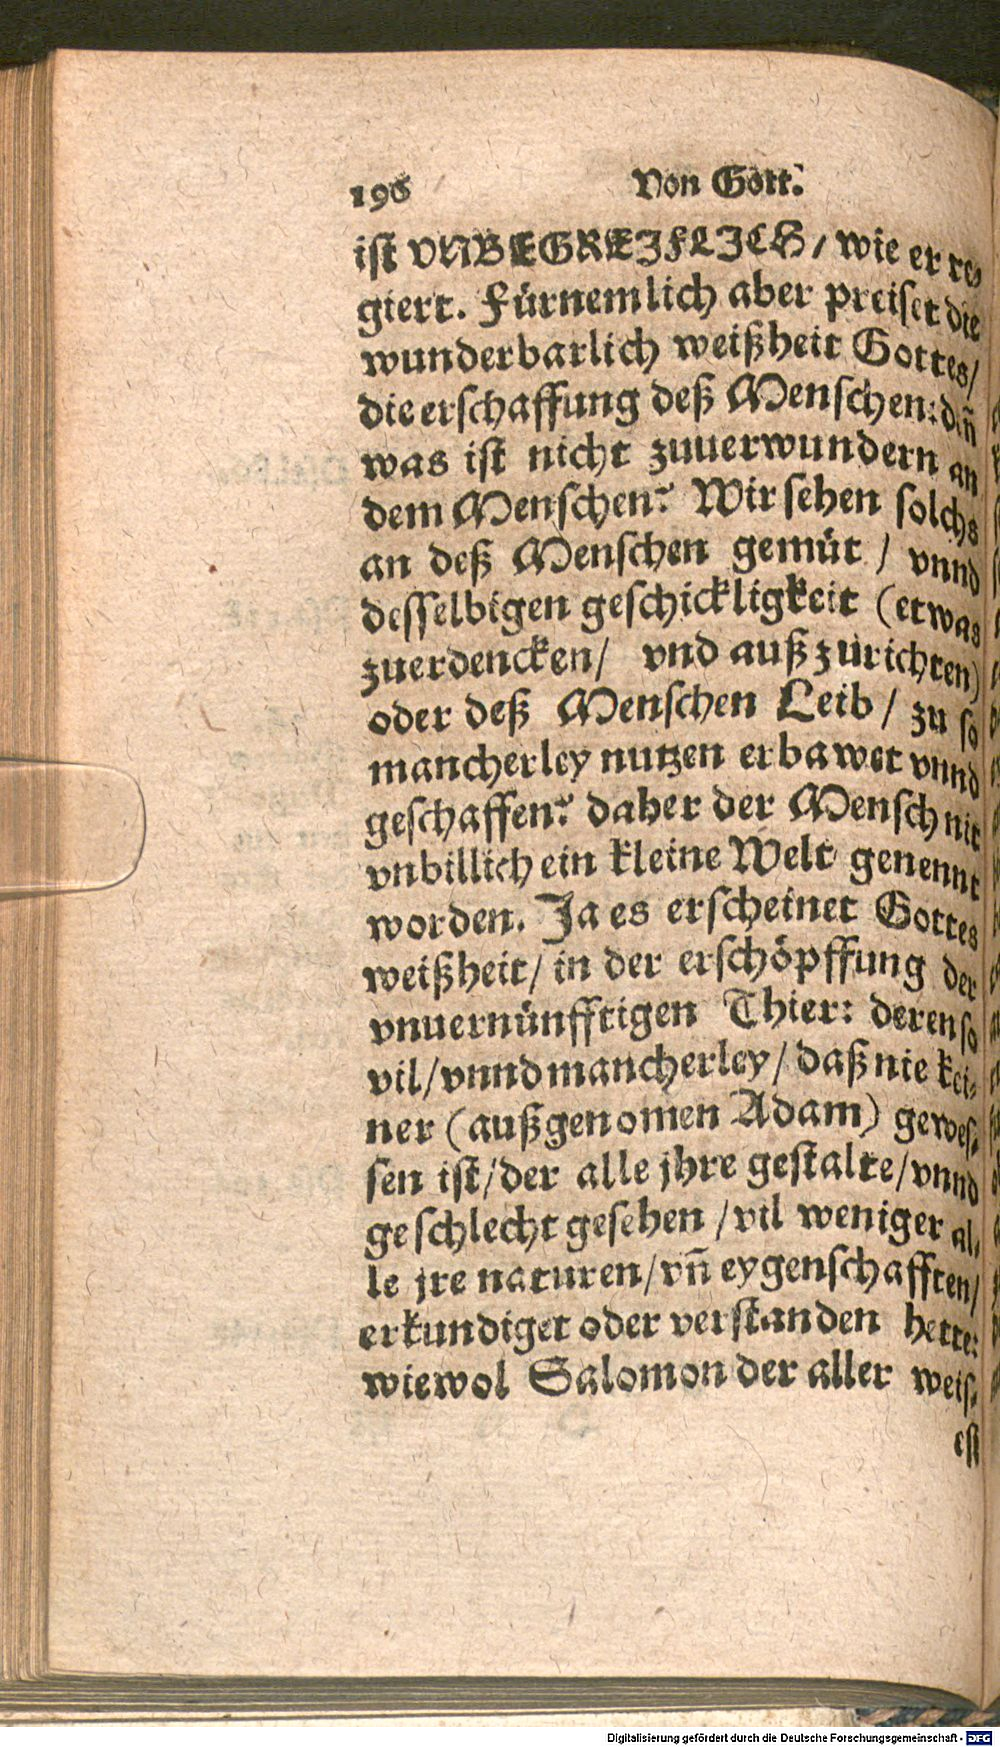 196 Von Gott.
ist VNBEGREIFLICH / wie er re-
giert. Fürnemlich aber preiset die
wunderbarlich weißheit Gottes /
die erschaffung deß Menschen: dañ
was ist nicht zuuerwundern an
dem Menschen? Wir sehen solchs
an deß Menschen gemüt / vnnd
desselbigen geschickligkeit (etwas
zuerdencken / vnd außzurichten)
oder deß Menschen Leib / zu so
mancherley nutzen erbawet vnnd
geschaffen? daher der Mensch nit
vnbillich ein kleine Welt genennt
worden. Ja es erscheinet Gottes
weißheit / in der erschöpffung der
vnuernünfftigen Thier: deren so
vil / vnnd mancherley / daß nie kei-
ner (außgenomen Adam) gewes-
sen ist / der alle jhre gestalte / vnnd
geschlecht gesehen / vil weniger al-
le jre naturen / vñ eygenschafften /
erkundiget oder verstanden hette:
wiewol Salomon der aller weis-
est
Digitalisierung gefördert durch die Deutsche Forschungsgemeinschaft - DFG